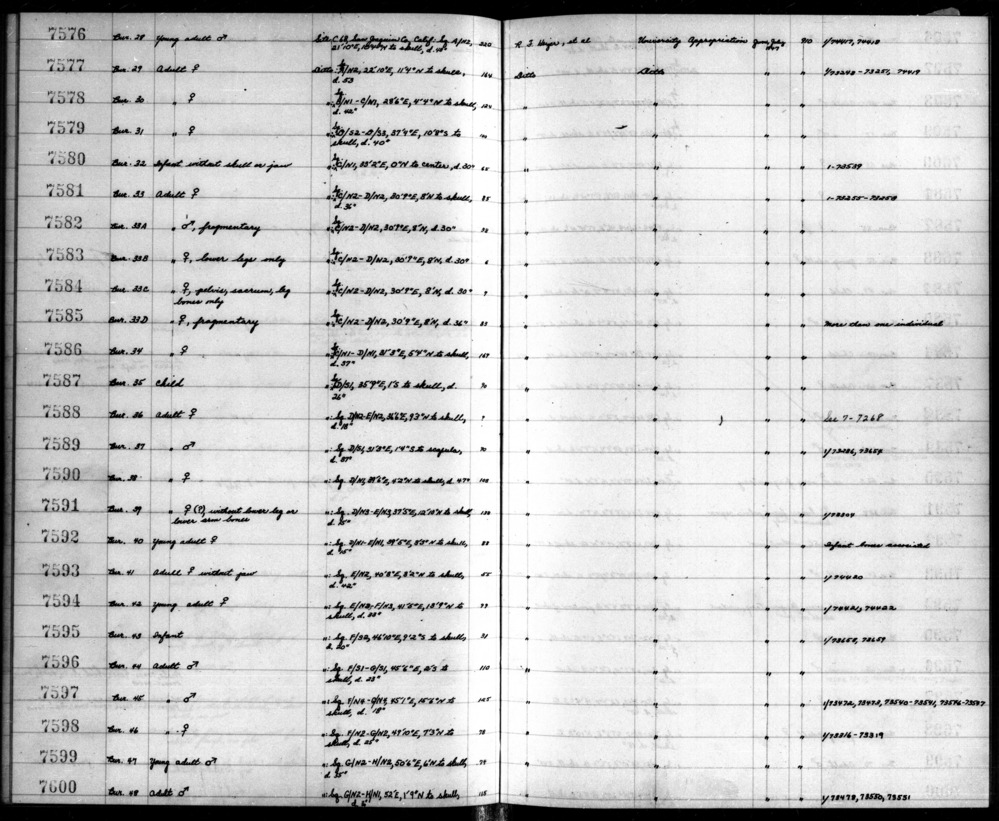 7576 Bur. 28 Young adult ♂ Site C 68, San Joaquin Co., Calif. Sq. A/N2, 220 R. F. Heizer, et al University Appropriation 1/74417, 74418
21'10"E, 10'4"N to skull, d. 48"
7577 Bur. 29 Adult ♀ Ditto: A/N2, 22'10"E, 11'4"N to skull, 164 Ditto Ditto " " 1/73248-73251, 74419
d. 53
7578 Bur. 30 " ♀ ": B/N1-C/N1, 28'6"E, 4'4"N to skull, 124 " " " "
d. 42"
7579 Bur. 31 " ♀ ": D/S2-D/S3, 37'4"E, 10'8"S to " " " "
skull, d. 40"
7580 Bur. 32 Infant without skull or jaw ": C/N1, 33'2"E, 0"N to center, d. 30" 65 " " " " 1-73539
7581 Bur. 33 Adult ♀ ": C/N2-D/N2, 30'9"E, 8'N to skull, 85 " " " " 1-73255-73259
d. 36"
7582 Bur. 33A " ♂, fragmentary ": C/N2-D/N2, 30'9"E, 8'N, d. 30" " " " "
7583 Bur. 33B " ♀, lower legs only ": C/N2-D/N2, 30'9"E, 8'N, d. 30" 6 " " " "
7584 Bur. 33C " ♀, pelvis, sacrum, leg ": C/N2-D/N2, 30'9"E, 8'N, d. 30" 9 " " " "
bones only
7585 Bur. 33D " ♀, fragmentary ": C/N2-D/N2, 30'9"E, 8'N, d. 36" 83 " " " " More than one individual
7586 Bur. 34 " ♀ ": C/N1-D/N1, 31'3"E, 5'4"N to skull, 167 " " " "
d. 37"
7587 Bur. 35 Child ": D/S1, 35'9"E, 1'S to skull, d. " " " "
26"
7588 Bur. 36 Adult ♀ ": Sq. D/N2-E/N2, 36'6"E, 9'3"N to skull, " " " " See 7-7268
d. 18"
7589 Bur. 37 " ♂ ": Sq. D/S1, 31'3"E, 1'4"S to scapula, 70 " " " " 1/73286, 73654
d. 37"
7590 Bur. 38 " ♀ ": Sq. D/N1, 39'6"E, 4'2"N to skull, d. 47" 108 " " " "
7591 Bur. 39 " ♀ (?), without lower leg or ": Sq. D/N3-E/N3, 37'5"E, 12'10"N to skull, " " " " 1/73304
lower arm bones d. 25"
7592 Bur. 40 Young adult ♀ ": Sq. D/N1-E/N1, 39'5"E, 5'5"N to skull, 88 " " " " Infant bones associated
d. 15"
7593 Bur. 41 Adult ♀ without jaw ": Sq. E/N2, 40'5"E, 8'2"N to skull, 55 " " " " 1/74420
d. 42"
7594 Bur. 42 Young adult ♀ ": Sq. E/N3-F/N3, 41'6"E, 13'9"N to 99 " " " " 1/74421, 74422
skull, d. 38"
7595 Bur. 43 Infant ": Sq. F/S2, 46'10"E, 9'2"S to skull, 31 " " " " 1/73658, 73659
d. 20"
7596 Bur. 44 Adult ♂ ": Sq. F/S1-G/S1, 45'6"E, 2'S to 110 " " " "
skull, d. 23"
7597 Bur. 45 " ♂ ": Sq. F/N4-G/N4, 45'1"E, 15'6"N to 125 " " " " 1/73472, 73473, 73540-73541, 73546-73547
skull, d. 18"
7598 Bur. 46 " ♀ ": Sq. F/N2-G/N2, 49'10"E, 7'3"N to 78 " " " " 1/73316-73319
skull, d. 25"
7599 Bur. 47 Young adult ♂ ": Sq. G/N2-H/N2, 50'6"E, 6'N to skull, 79 " " " "
d. 35"
7600 Bur. 48 Adlt ♂ ": Sq. G/N2-H/N1, 52'E, 1'9"N to skull, 115 " " " " 1/73478, 73550, 73551